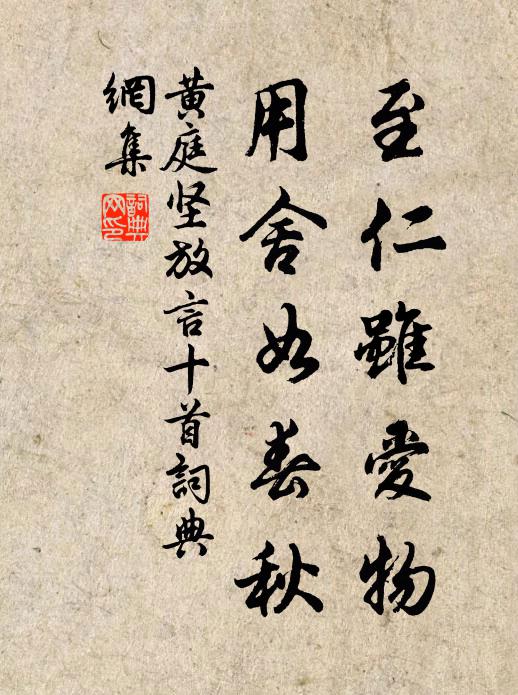 至仁雖愛物
用舍如春秋
黃庭坚放言十首詞典
網集
詞典
网印